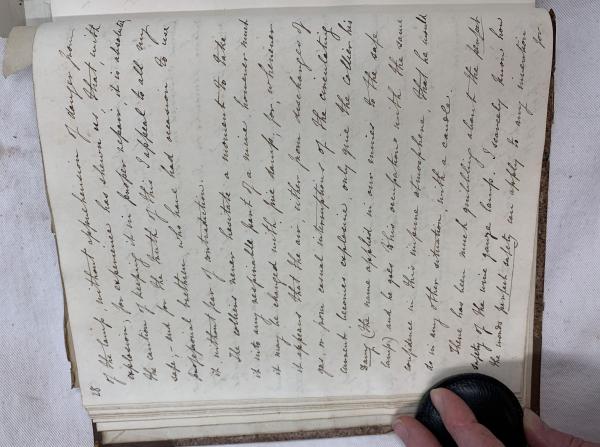 28
of the lamp, without apprehension of danger from
explosion, for experience has shewn us that, with
the caution of keeping it in proper repair, it is absolutely
safe; and for the truth of this I appeal to all my
professional brethren, who have had occasion to use
it without fear of contradiction.
The colliers never hesitate a moment to take
it into any respirable part of a mine, however much
it may be charged with fire damp; for, whenever
it appears that the air either from discharges of
gas or from casual interruptions of the circulating
current becomes explosive only give the collier his
Davy (the name applied in our mines to the safe
lamp) and he goes to his occupations with the same
confidence in this impure atmosphere that he would
do in any other situation with a candle.
There has been much quibbling about the perfect
safety of the wire gauze lamp. I scarcely know how
the words perfect safety can apply to any invention
for